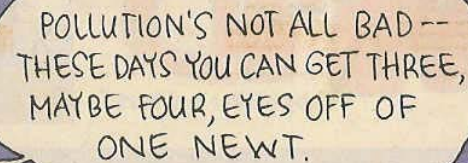 POLLUTION'S NOT ALL BAD--
THESE DAYS YOU CAN GET THREE,
MAYBE FOUR, EYES OFF OF
ONE NEWT.